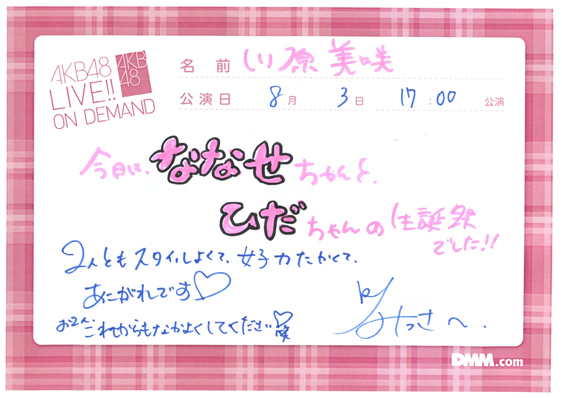 AKB48
LIVE!!
ON DEMAND
AKB
48
名 前 川原美咲
公演日 8月 3日 17:00 公演
今日は、ななせちゃんと、
ひだちゃんの生誕祭
でした!!
2人ともスタイルよくて、女子力たかくて、
あこがれです♡
これからもなかよくしてください
みっきー.
DMM.com